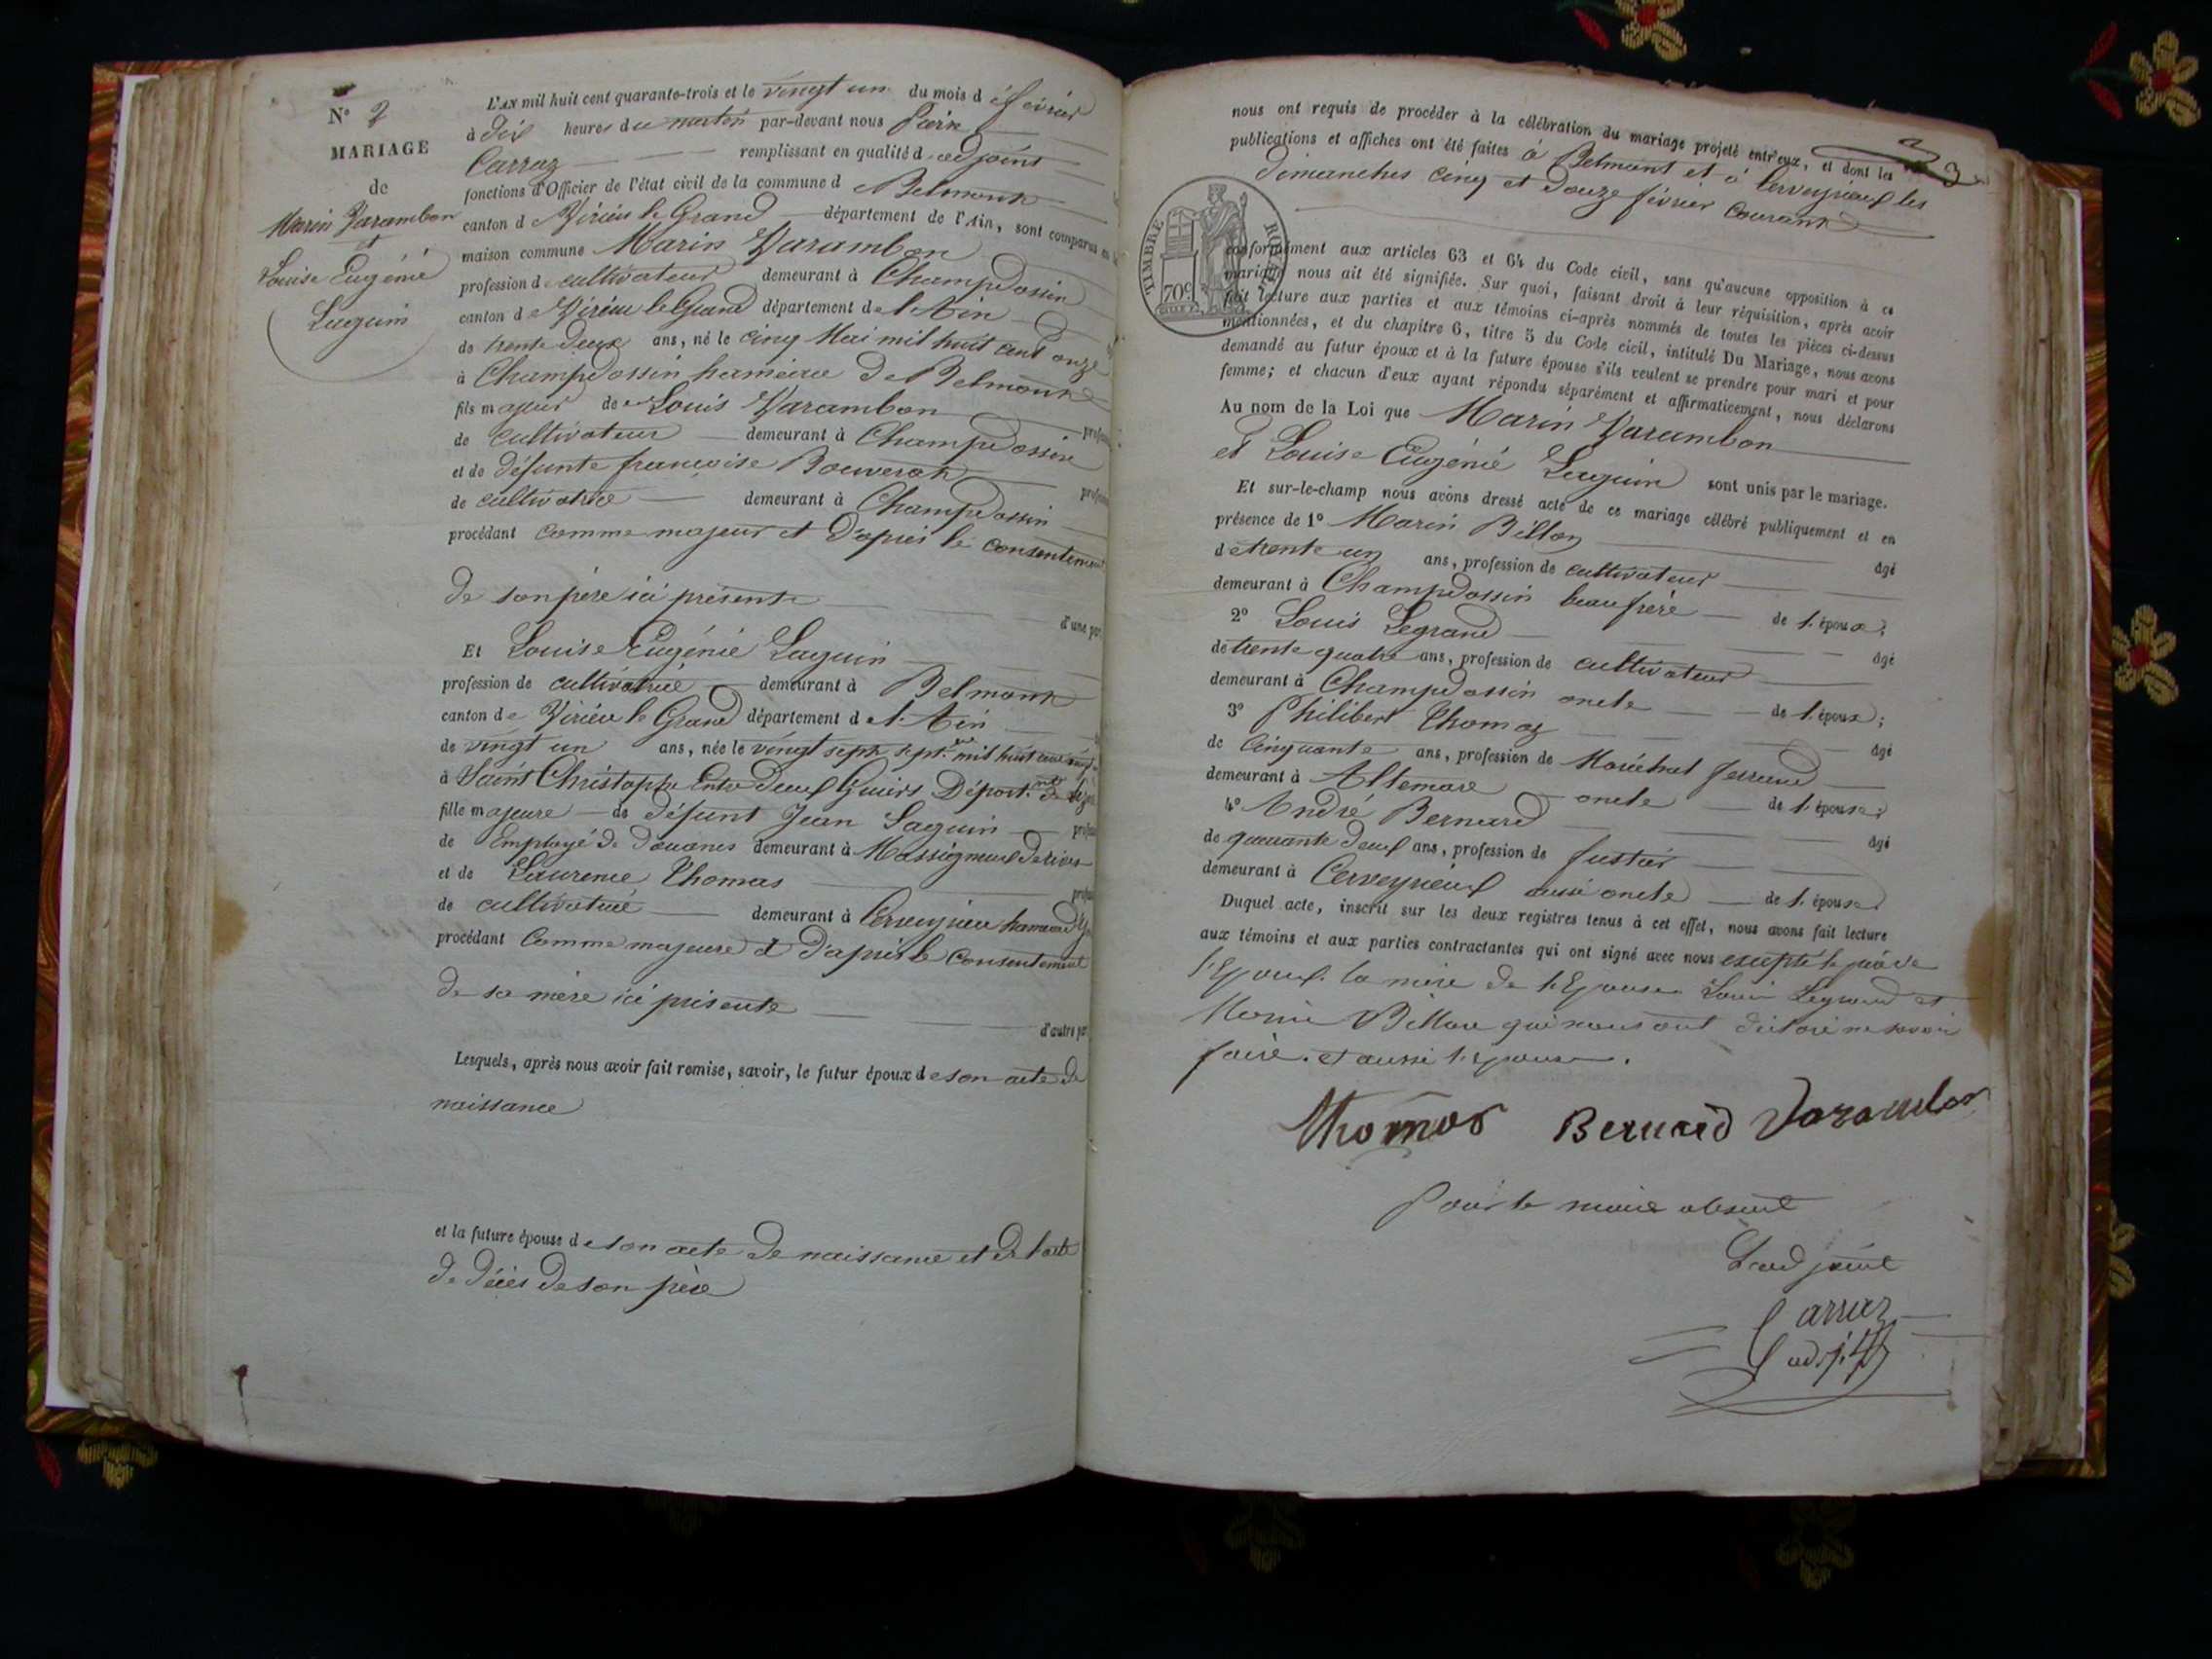 N° 2
MARIAGE
de
Marin Varambon
et
Louise Eugénie
Laguin
L'AN mil huit cent quarante-trois et le vingt un du mois d février
à dix heures du matin par-devant nous
Carraz remplissant en qualité d adjoint
fonctions d'Officier de l'état civil de la commune d Belmont
canton d Virieu le Grand département de l'Ain, sont comparus en
maison commune Marin Varambon
profession de cultivateur demeurant à Champdossin
canton de Virieu le Grand département de l'Ain
de trente deux ans, né le cinq Mai mil huit cent onze
à Champdossin hameau de Belmont
fils majeur de Louis Varambon
de cultivateur demeurant à Champdossin
et de défunte françoise Bouverat
de cultivatrice demeurant à Champdossin
procédant comme majeur et d'après le consentement
de son père ici présent
d'une par
Et Louise Eugénie Laguin
profession de cultivatrice demeurant à Belmont
canton de Virieu le Grand département de l'Ain
de vingt un ans, née le vingt sept sept.bre mil huit cent
à Saint Christophe Entre deux Guiers Départ.ment de
fille majeure de défunt Jean Laguin
de Employé de douanes demeurant à Massigneux de rives
et de Laurence Thomas
de cultivatrice demeurant à Cerveyrieu hameau
procédant comme majeure et d'après le consentement
de sa mère ici présente
d'autre par
Lesquels, après nous avoir fait remise, savoir, le futur époux de son acte de
naissance
et la future épouse de son acte de naissance et de l'acte
de décès de son père
3
nous ont requis de procéder à la célébration du mariage projeté entr'eux, et dont les
publications et affiches ont été faites à Belmont et à Cerveyrieux les
dimanches cinq et douze février courant
TIMBRE ROYAL
70c
conformément aux articles 63 et 64 du Code civil, sans qu'aucune opposition à ce
mariage nous ait été signifiée. Sur quoi, faisant droit à leur réquisition, après avoir
fait lecture aux parties et aux témoins ci-après nommés de toutes les pièces ci-dessus
mentionnées, et du chapitre 6, titre 5 du Code civil, intitulé Du Mariage, nous avons
demandé au futur époux et à la future épouse s'ils veulent se prendre pour mari et pour
femme; et chacun d'eux ayant répondu séparément et affirmativement, nous déclarons
Au nom de la Loi que Marin Varambon
et Louise Eugénie Laguin sont unis par le mariage.
Et sur-le-champ nous avons dressé acte de ce mariage célébré publiquement et en
présence de 1° Marin Billon âgé
de trente un ans, profession de cultivateur
demeurant à Champdossin beau frère de l'époux;
2° Louis Legrand âgé
de trente quatre ans, profession de cultivateur
demeurant à Champdossin oncle de l'époux;
3° Philibert Thomas âgé
de cinquante ans, profession de Maréchal ferrand
demeurant à Artemare oncle de l'épouse;
4° André Bernard âgé
de quarante deux ans, profession de fustier
demeurant à Cerveyrieux aussi oncle de l'épouse.
Duquel acte, inscrit sur les deux registres tenus à cet effet, nous avons fait lecture
aux témoins et aux parties contractantes qui ont signé avec nous excepté le père de
l'Epoux, la mère de l'Epouse Louis Legrand et
Marin Billon qui nous ont déclaré ne savoir
faire. et aussi l'epouse.
Thomas Bernard Varambon
Pour le maire absent
L'adjoint
Carraz
adj.